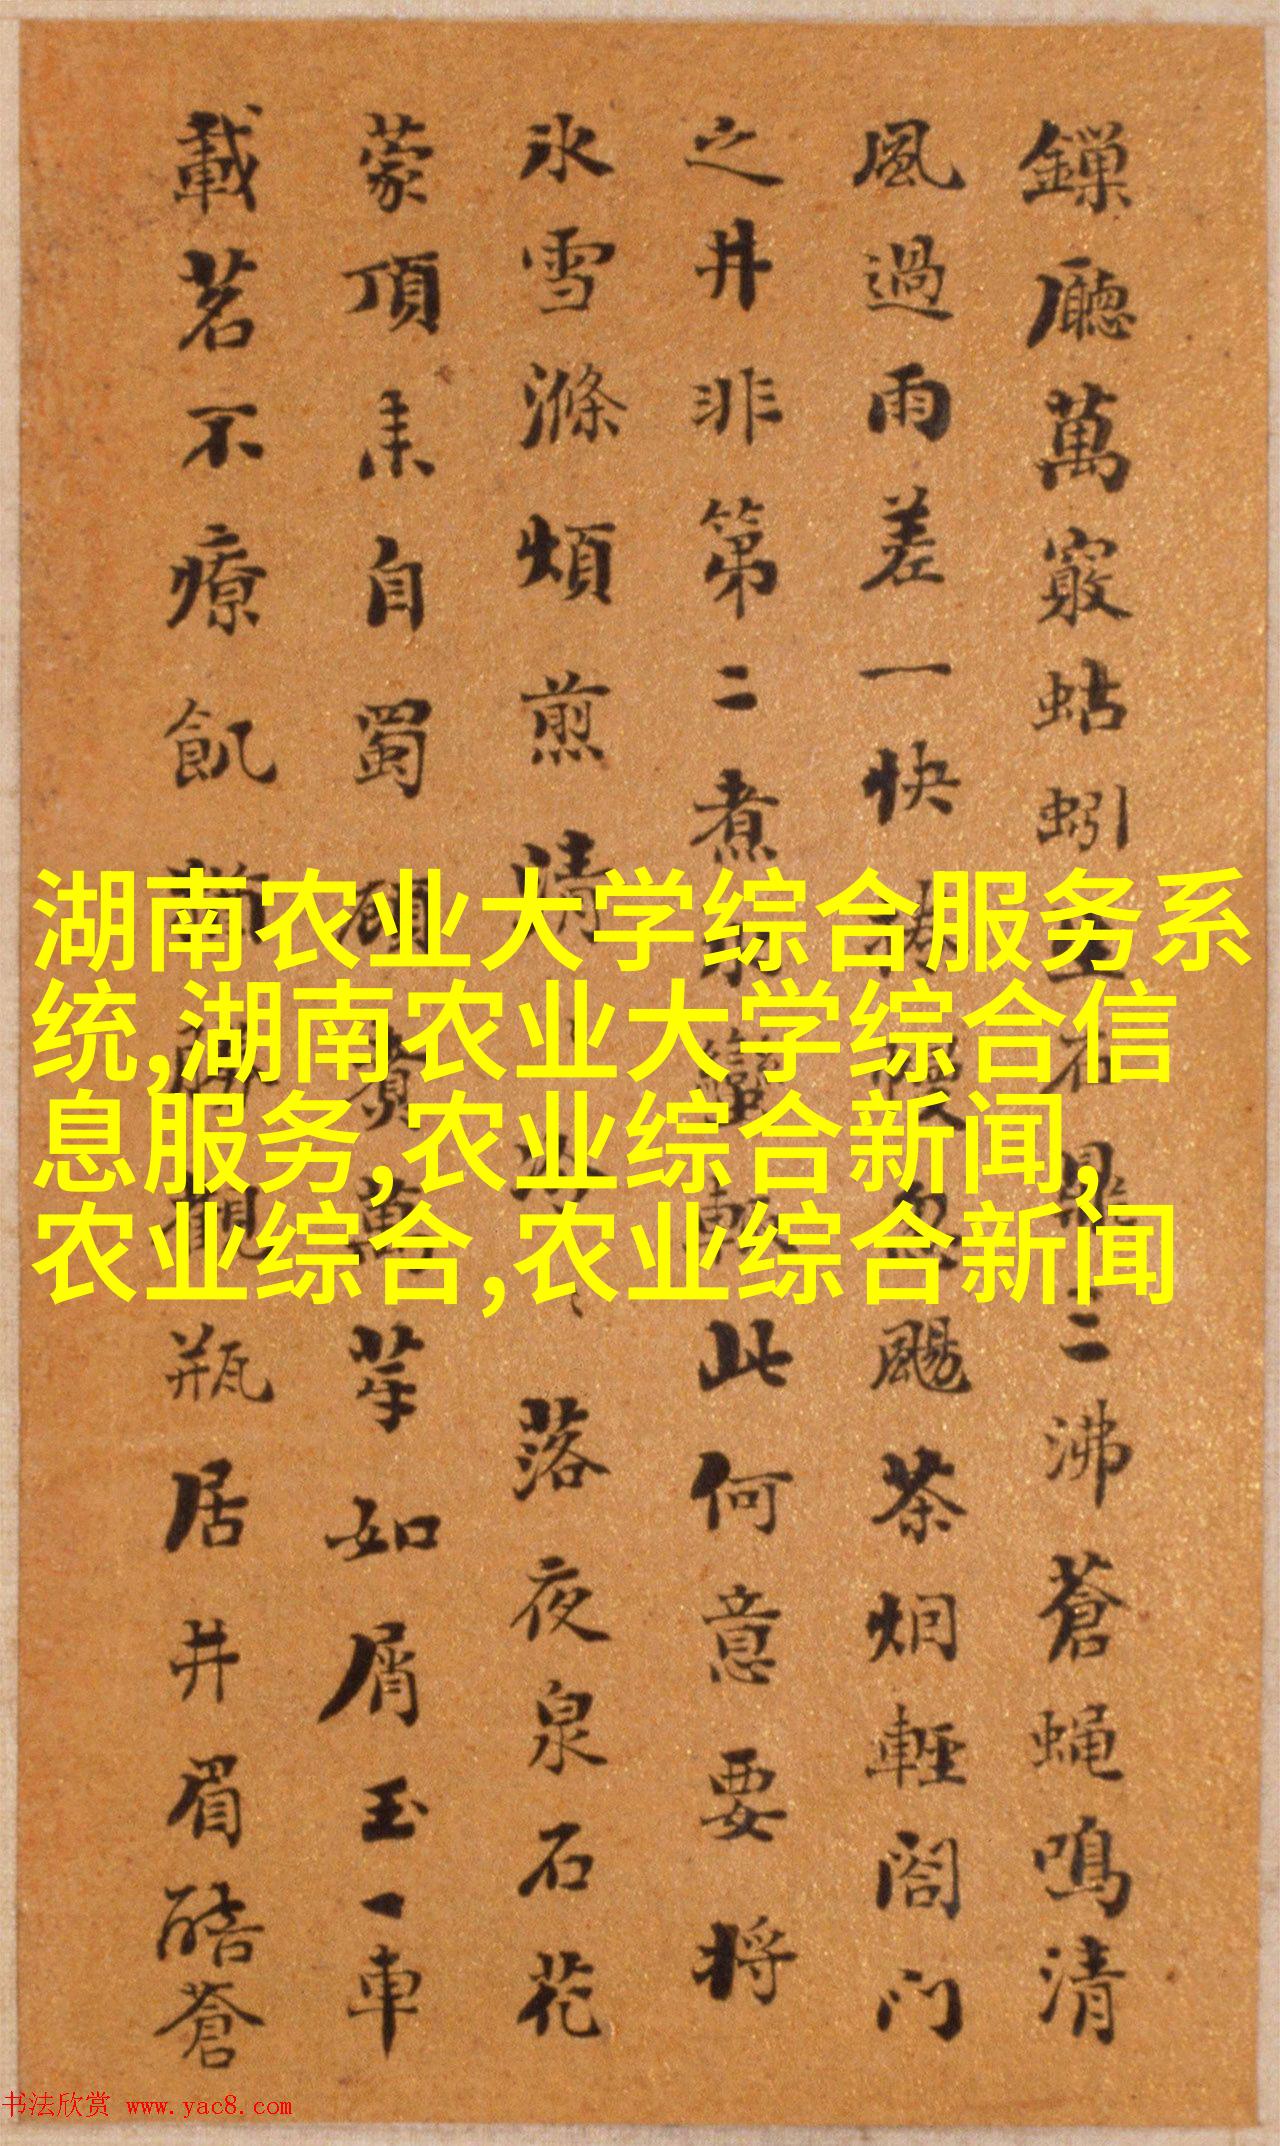 鏁廳萬竅蛄蚓
二沸蒼蝇鳴清
風過雨差一快
颺茶烟輕閤门
之井非第二煮
此何意要将
氷雪滌煩煎
落夜泉石花
蒙頂耒自蜀
芽如屑玉一車
載茗不療飢
瓶居井眉酷蒼
湖南农业大学综合服务系
统,湖南农业大学综合信
息服务,农业综合新闻,
农业综合,农业综合新闻
书法欣赏 www.yac8.com